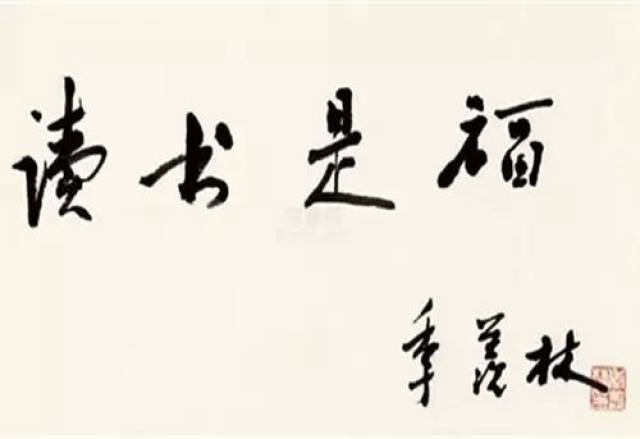 讀书是福
季羡林